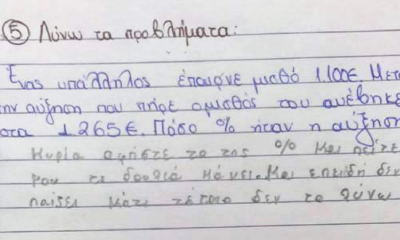 ⑤ Λύνω τα προβλήματα:
Ένας υπάλληλος έπαιρνε μισθό 1.100€. Μετ
την αύξηση που πήρε ο μισθός του ανέβηκε
στα 1265€. Πόσο % ήταν η αύξηση
Κυρία αφήστε το της % και πείτε
μου τι δουλιά κάνει. Και επειδή δεν
παίζει κάτι τέτοιο δεν το λύνω